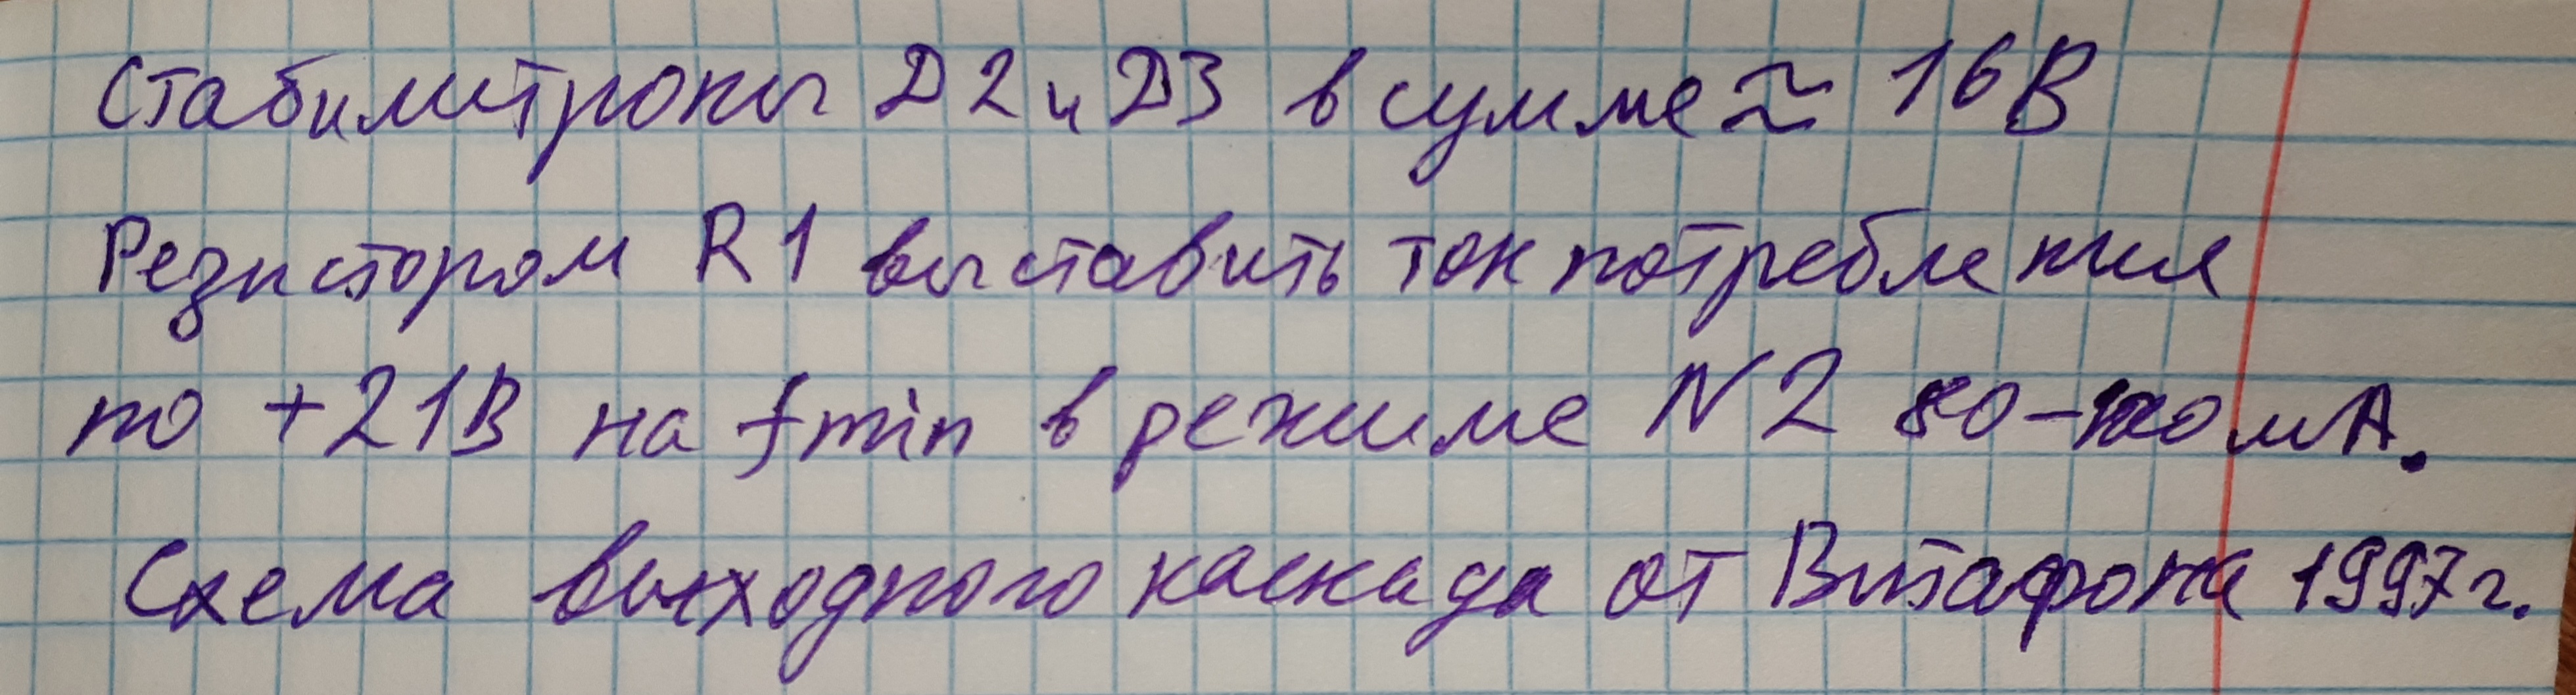 Стабилитроны D2 и D3 в сумме ≈ 16В
Резистором R1 выставить ток потребления
по +21В на fmin в режиме N2 80-100мА.
Схема выходного каскада от Витафона 1997г.